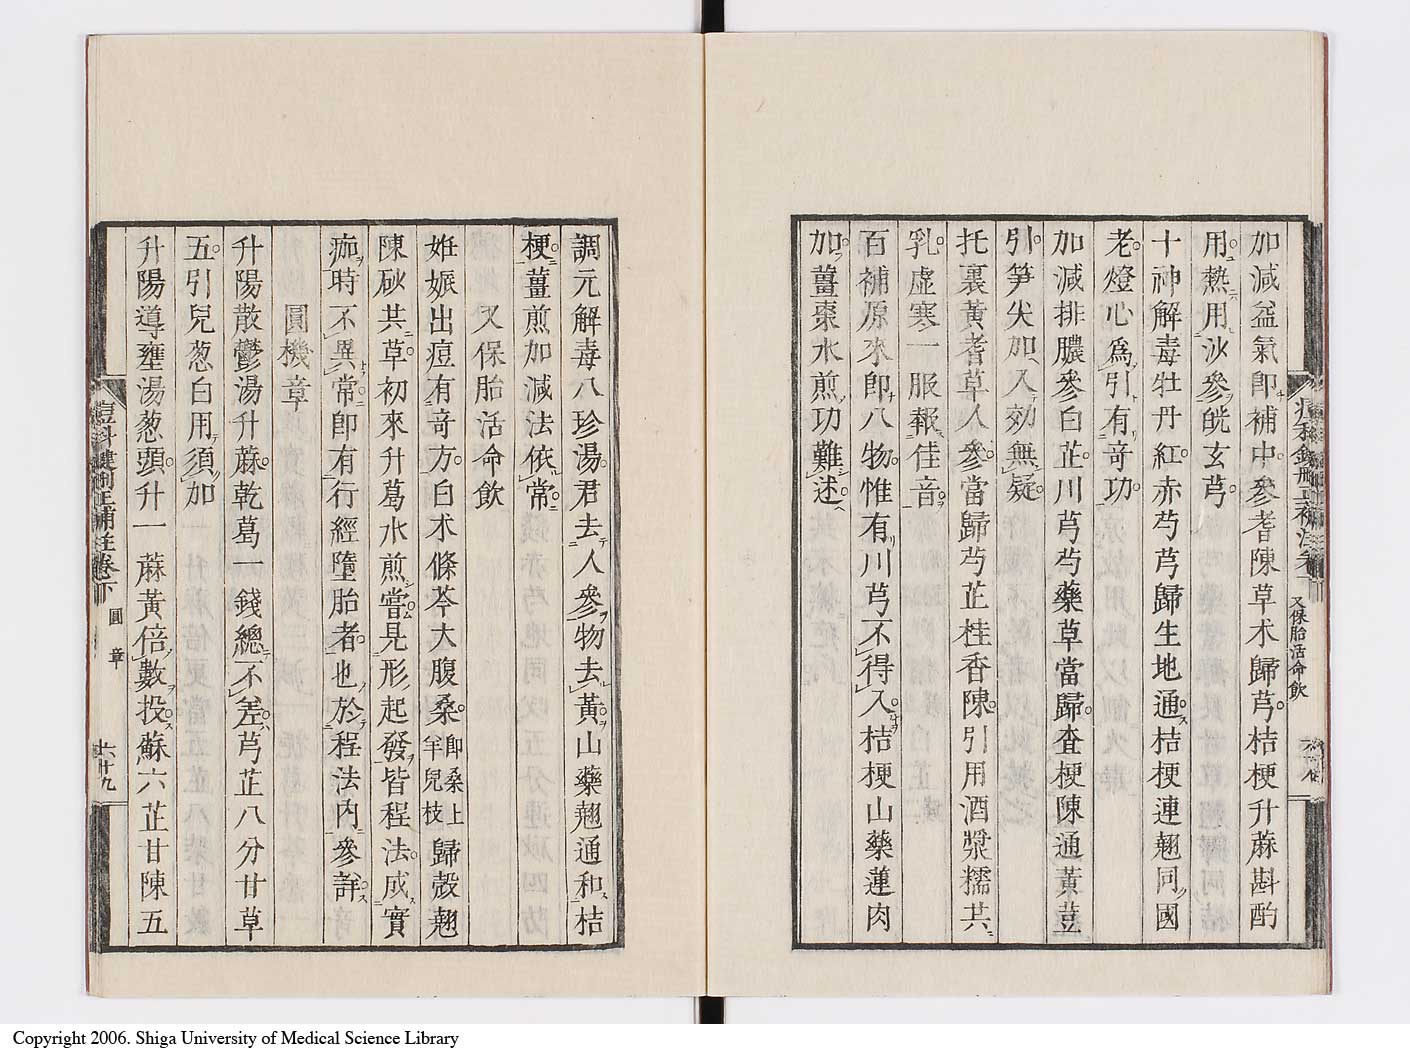 加減益氣卽補中參耆陳草术歸芎桔梗升蔴斟酌
用熱用沙參㿠玄芎
十神解毒牡丹紅赤芍芎歸生地通桔梗連翹同國
老燈心爲引有竒功
加減排膿參白芷川芎芍藥草當歸査梗陳通黃荳
引笋尖加入効無疑
托裏黃耆草人參當歸芍芷桂香陳引用酒漿糯共
乳虛寒一服報佳音
百補原來卽八物惟有川芎不得入桔梗山藥蓮肉
加薑棗水煎功難述
又保胎活命飮
調元解毒八珍湯君去人參物去黃山藥翹通和桔
梗薑煎加減法依常
又保胎活命飮
姙娠出痘有竒方白朮條芩大腹桑卽桑上羊兒枝歸殼翹
陳砂共草初來升葛水煎嘗見形起發皆程法成實
痂時不異常卽有行經墮胎者也於程法內參詳
圓機章
升陽散鬱湯升蔴乾葛一錢總不差芎芷八分甘草
五引兒葱白用須加
升陽導壅湯葱頭升一蔴黃倍數投蘇六芷甘陳五
痘科鍵刪正補註卷下
圓章
六十九
Copyright 2006. Shiga University of Medical Science Library